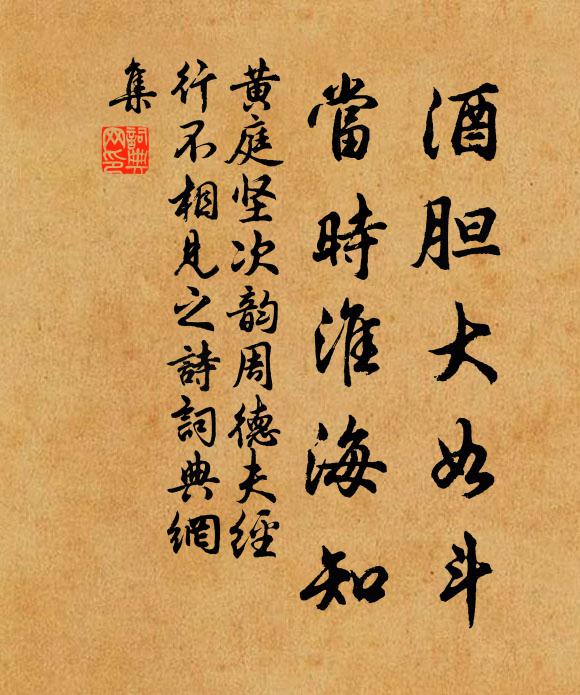 酒胆大如斗
當時淮海知
黄庭坚次韵周德夫經
行不相見之詩詞典網
集
詞典
网印